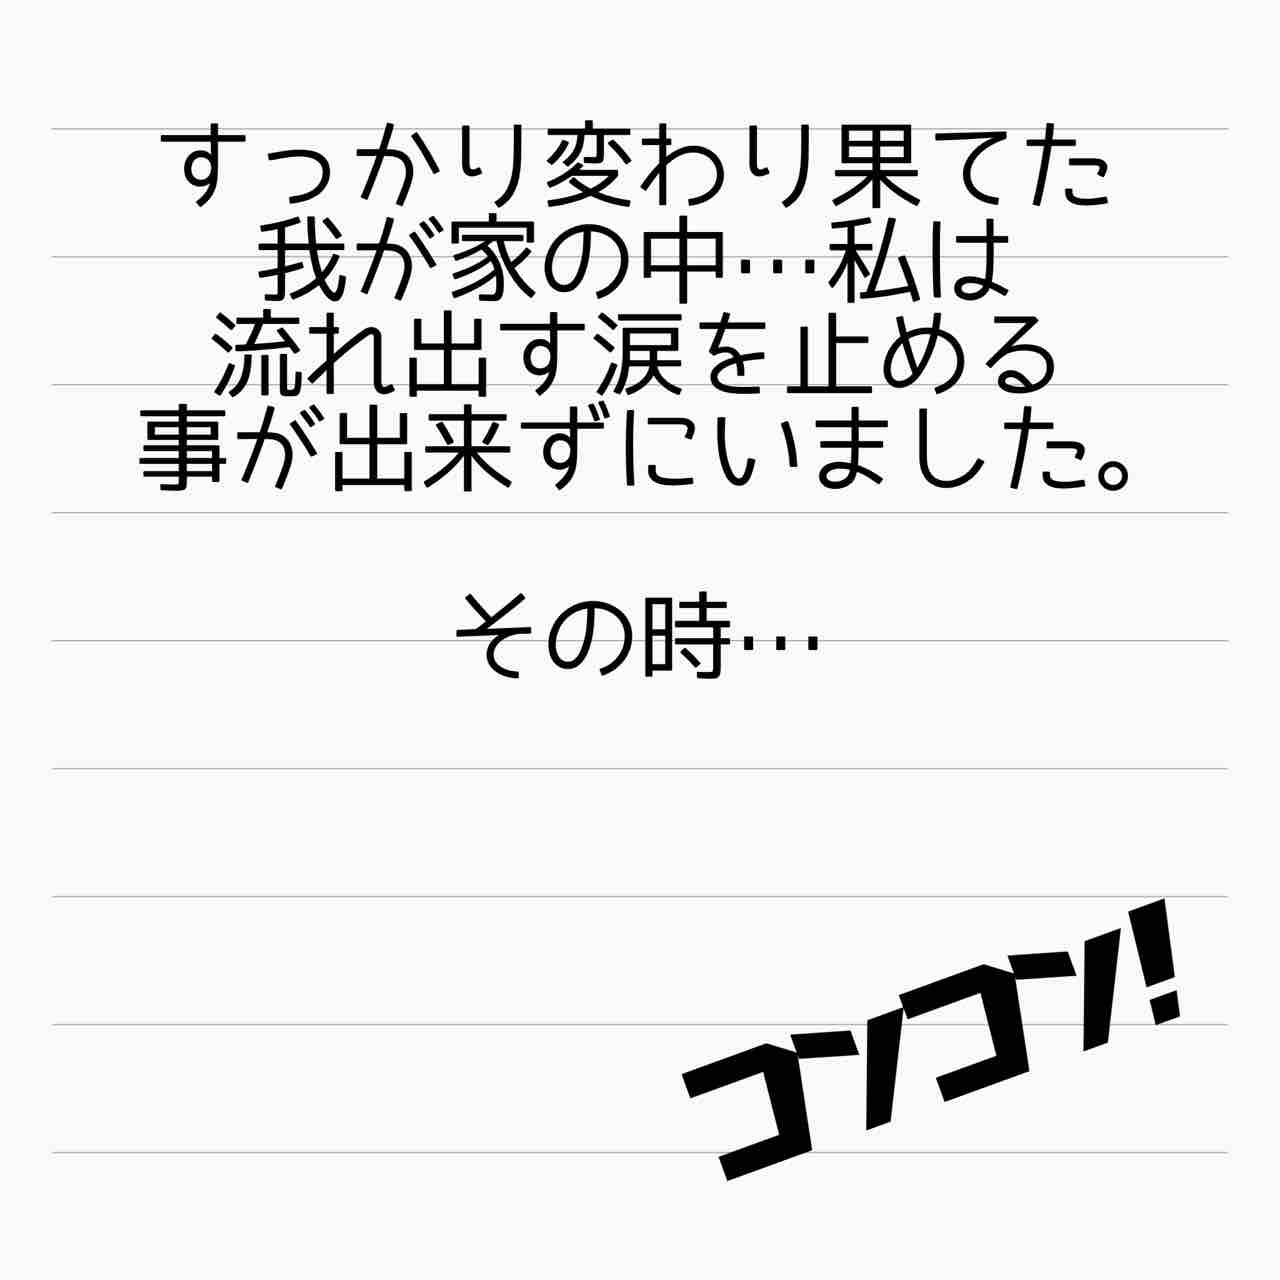 すっかり変わり果てた
我が家の中…私は
流れ出す涙を止める
事が出来ずにいました。
その時…
コンコン！